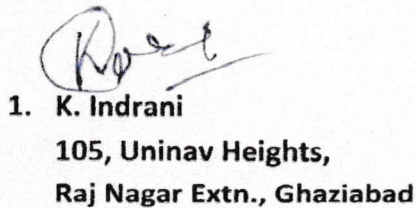 1. K. Indrani
105, Uninav Heights,
Raj Nagar Extn., Ghaziabad